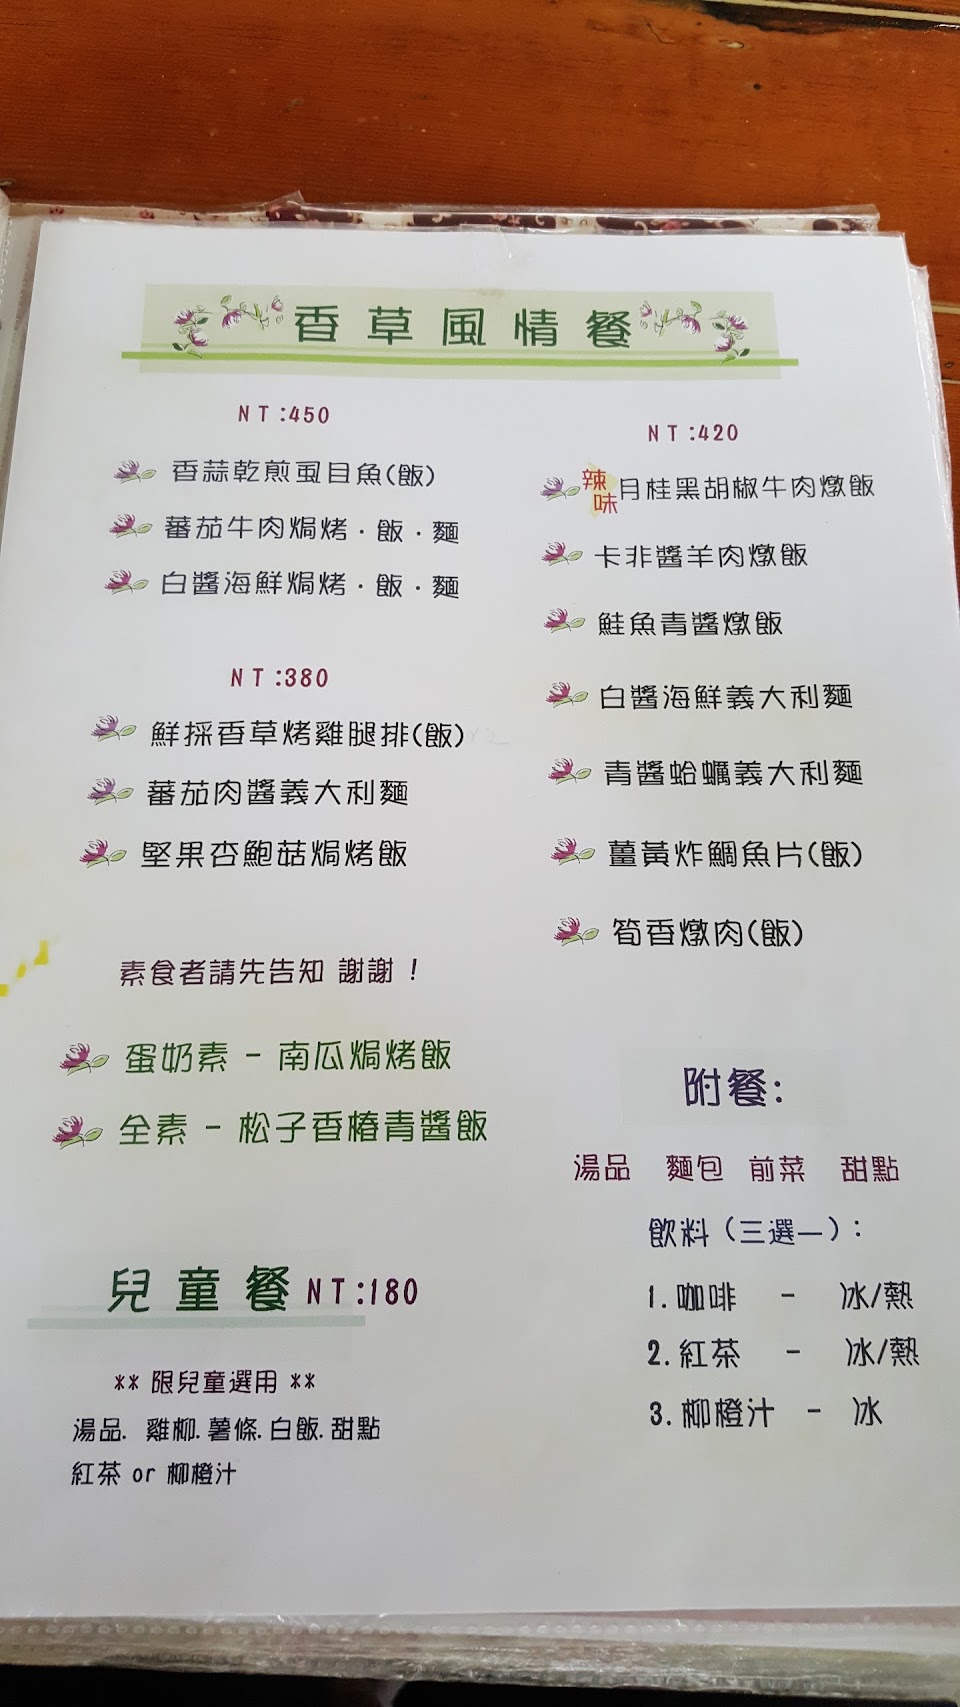 香草風情餐
NT:450
香蒜乾煎虱目魚(飯)
蕃茄牛肉焗烤·飯·麵
白醬海鮮焗烤·飯·麵
NT:380
鮮採香草烤雞腿排(飯)
蕃茄肉醬義大利麵
堅果杏鮑菇焗烤飯
素食者請先告知 謝謝 !
蛋奶素 - 南瓜焗烤飯
全素 - 松子香椿青醬飯
兒童餐 NT:180
** 限兒童選用 **
湯品. 雞柳.薯條.白飯.甜點
紅茶 or 柳橙汁
NT:420
辣味 月桂黑胡椒牛肉燉飯
卡非醬羊肉燉飯
鮭魚青醬燉飯
白醬海鮮義大利麵
青醬蛤蠣義大利麵
薑黃炸鯛魚片(飯)
筍香燉肉(飯)
附餐:
湯品 麵包 前菜 甜點
飲料 (三選一) :
1.咖啡 - 冰/熱
2.紅茶 - 冰/熱
3.柳橙汁 - 冰